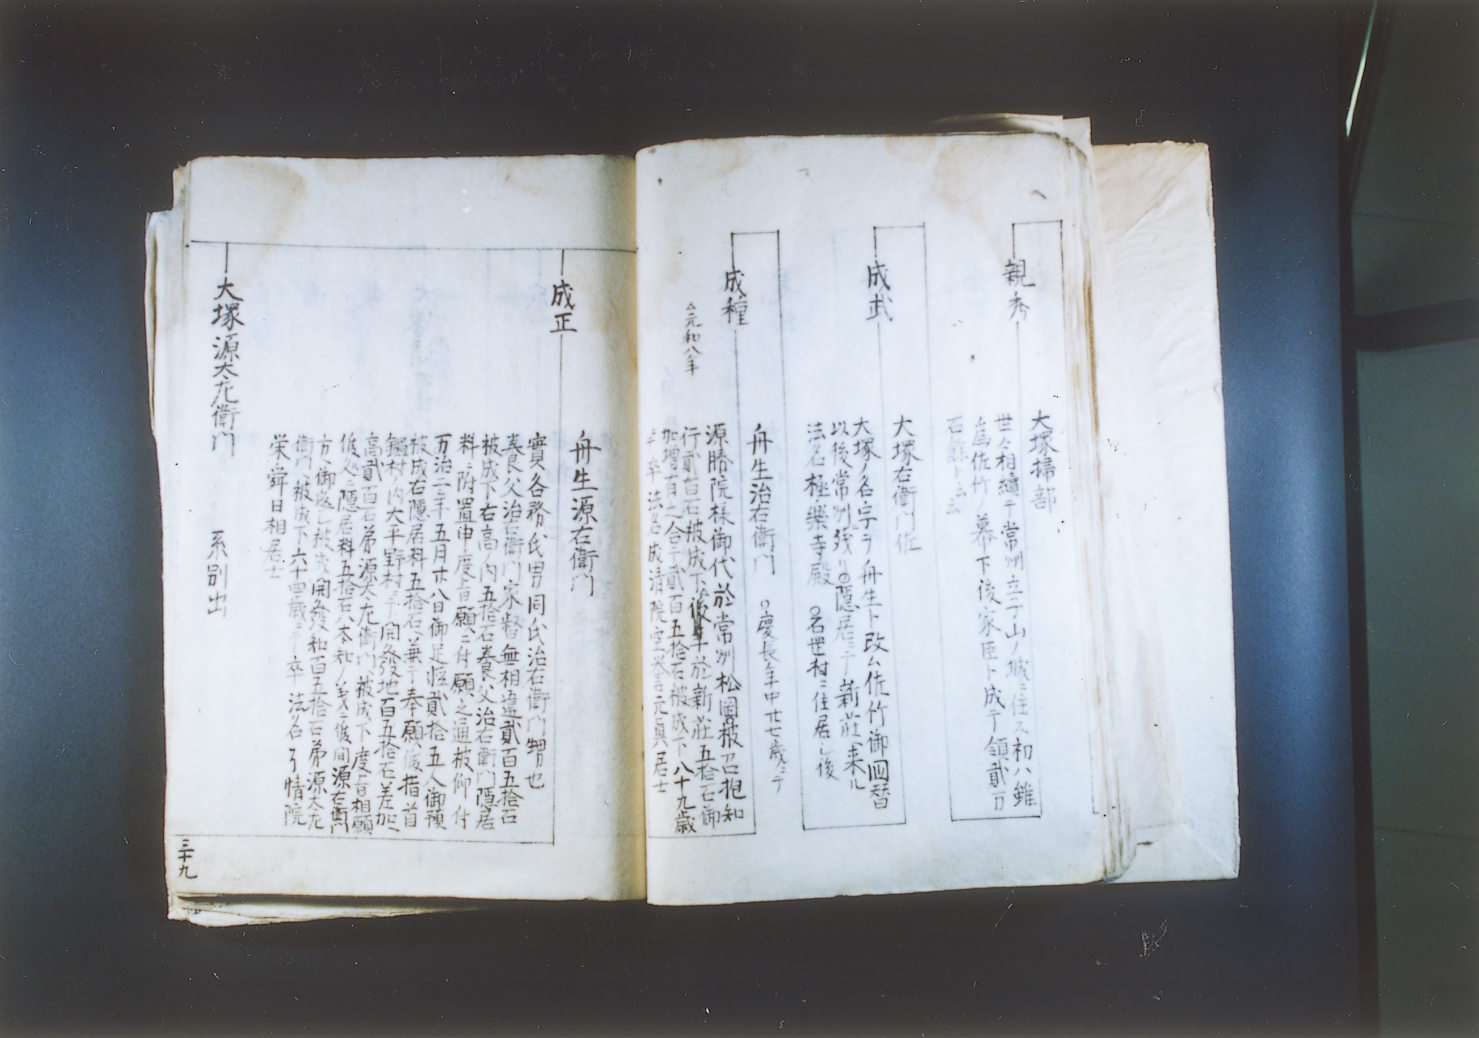 親秀
大塚掃部
世々相續テ常州立子山ノ城ニ住ス初ハ雖
為佐竹ノ幕下後家臣ト成テ領貳万
石餘ト云云
成武
大塚右衛門佐
大塚ノ名字ヲ舟生ト改ム佐竹御国替
以後常州残リ隠居シテ新荘来ル
法名極樂寺殿 名世村ニ住居し後
成種
舟生治右衛門 慶長年中廿七歳ニテ
源勝院様御代於常州松岡被召抱知
行貳百石被成下後年於新荘五拾石御
加増有之合テ貳百五拾石被成下八十九歳
元和八年
卒法名成清院
居士
成正
舟生源右衛門
實各務氏男同氏治右衛門甥也
養父治右衛門家督無相違貳百五拾石
被成下右高ノ内五拾石養父治右衛門隠居
料ニ附置申度旨願ニ付願之通被仰付
万治二年五月廿八日御足軽貳拾五人御預
被成右隠居料五拾石ヲ兼テ奉願後指首
鍋村ノ内大平野村ニテ開發地百五拾石差加
高貳百石弟源太左衛門被成下度旨相願
隠居料五拾石
開發和百五拾石弟源太左
衛門被成下六十四歳ニテ卒法名了情院
栄舜日相居士
大塚源太左衛門 系別出
三十九